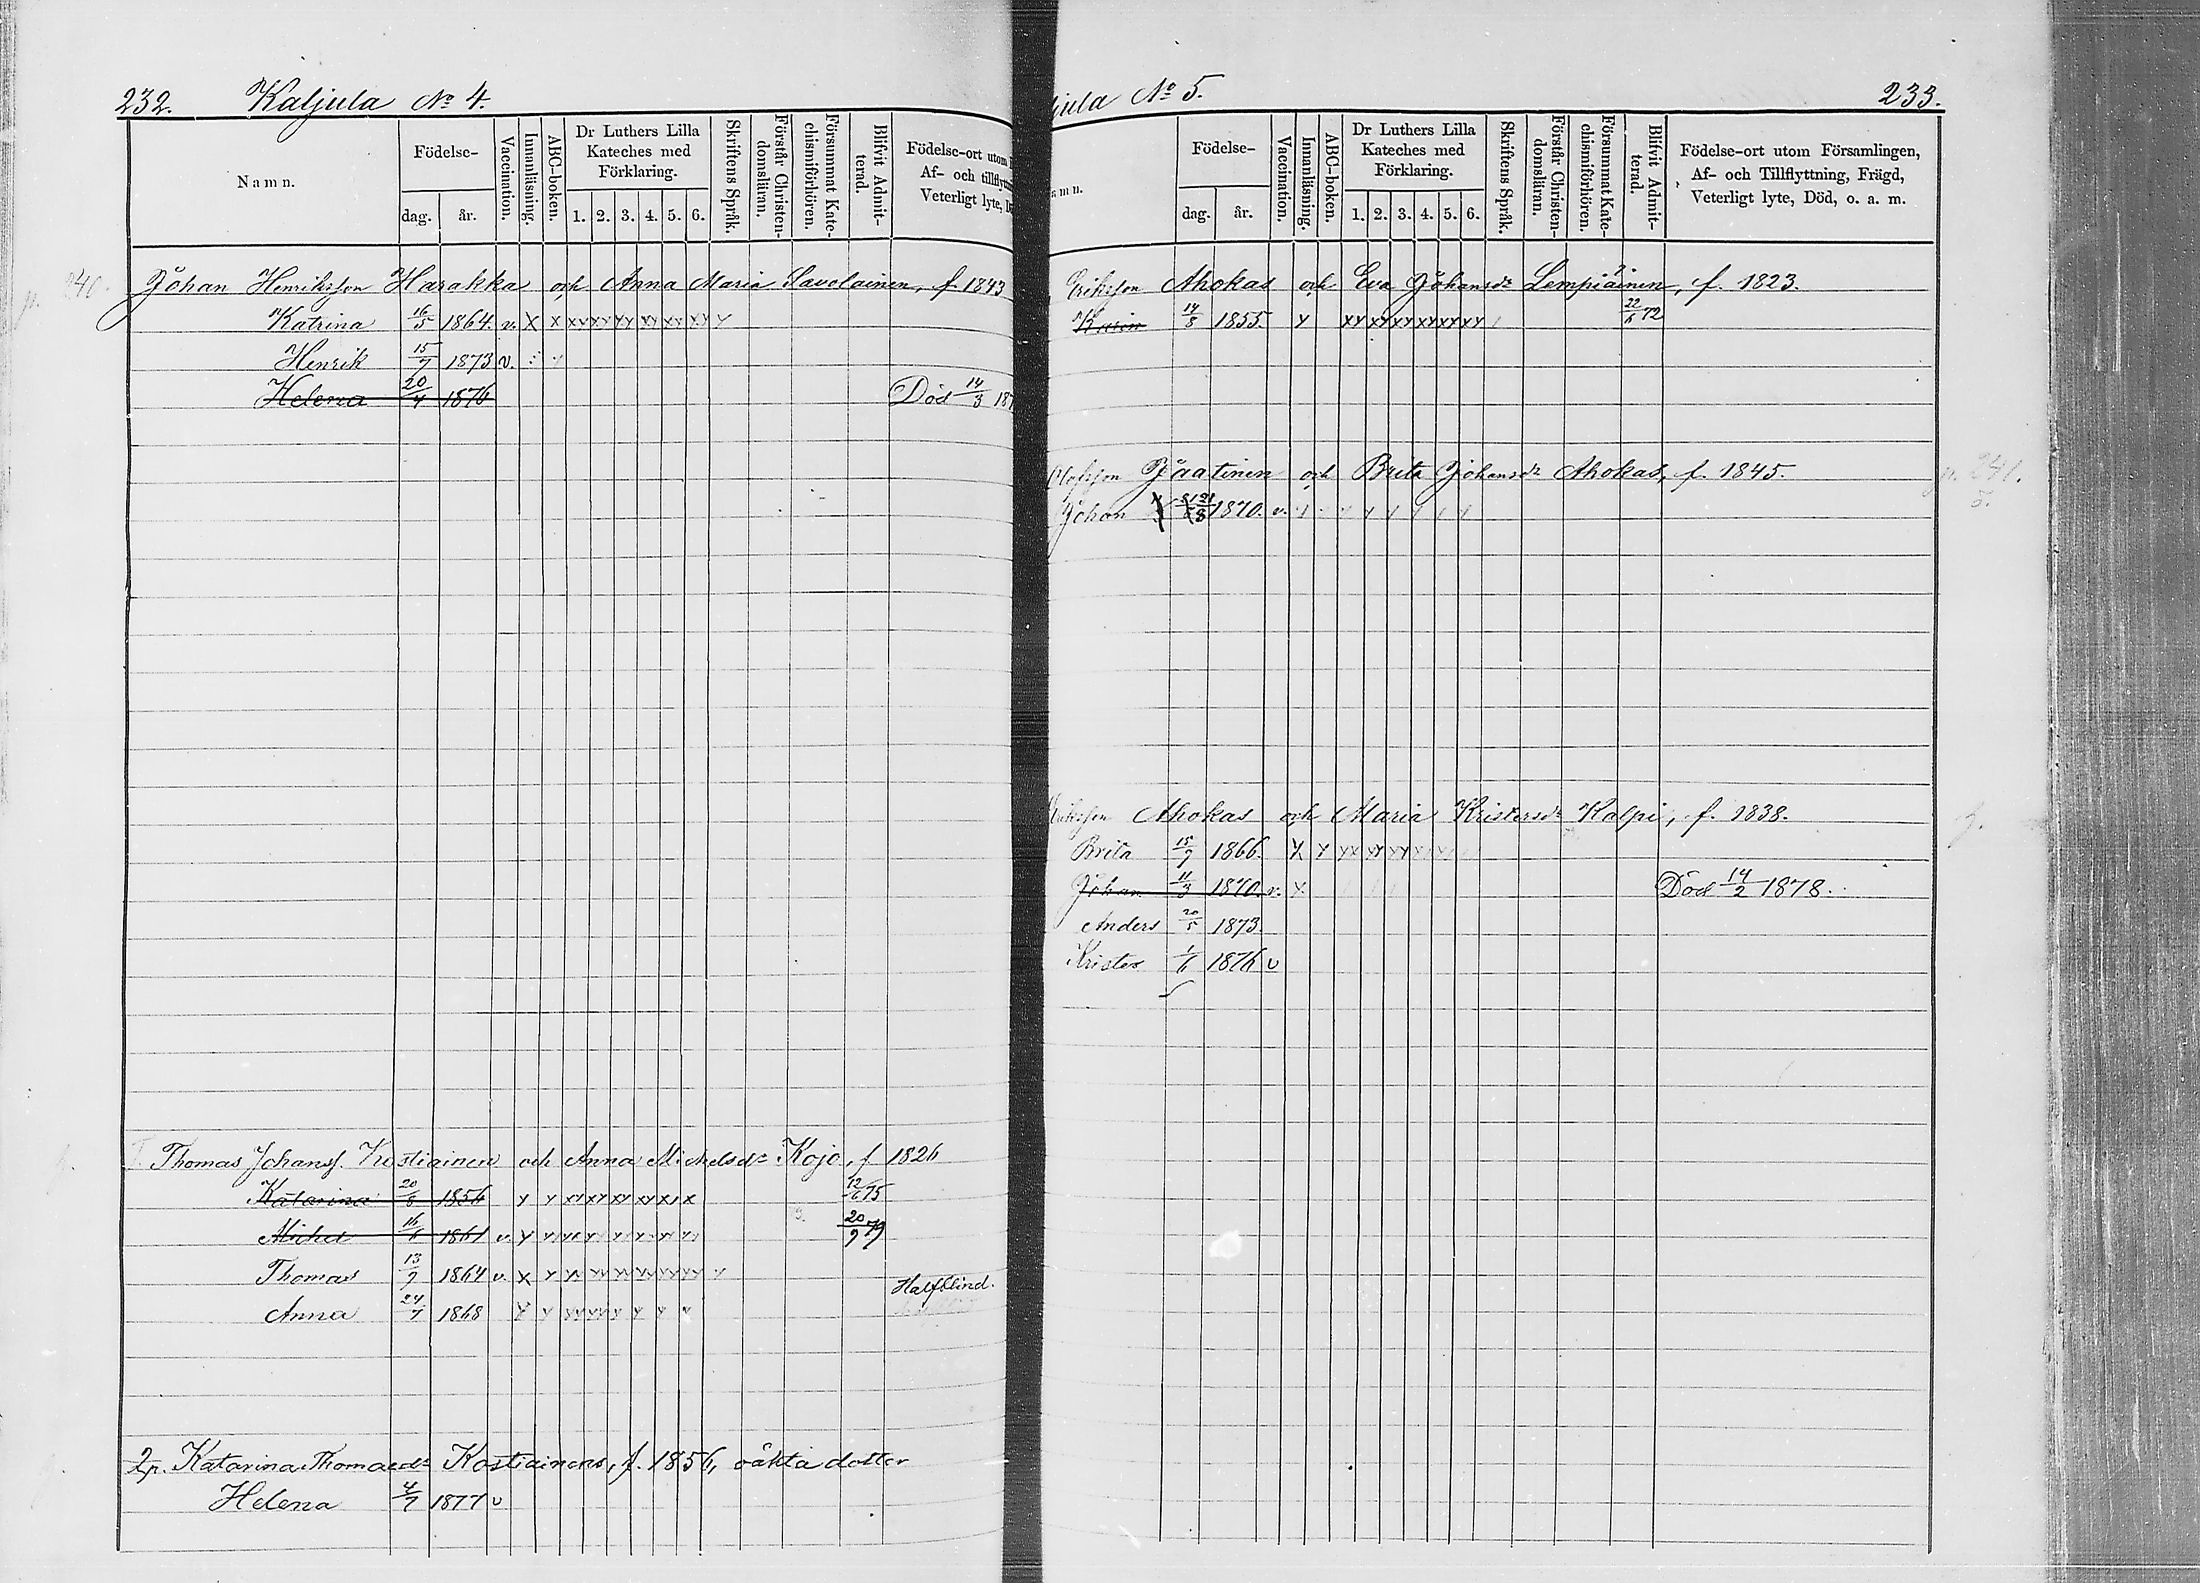 232. Kaljula No 4.
Namn.
Födelse-
dag. år.
Vaccination.
Innanläsning.
ABC-boken.
Dr Luthers Lilla
Kateches med
Förklaring.
1. 2. 3. 4. 5. 6.
Skriftens Språk.
Förstår Christen-
domsläran.
Försummat Kate-
chismiförhören.
Blifvit Admit-
terad.
Födelse-ort utom
Af- och tillflytt
Veterligt lyte,
240.
Johan Henriksson Harakka och Anna Maria Savolainen, f. 1843
Katrina 16/5 1864. v. X X XX XX XX XX XX XX Y
Henrik 15/7 1873 v.
Helena 20/4 1876 Död 14/3 187
Thomas Johanss. Kostiainen och Anna Michelsdr Kojo, f 1826
Katarina 20/8 1856 Y Y XX XX XX XX XX X 12/6 75
Michel 16/6 1861 v. Y Y 20/9 79
Thomas 13/9 1864 v. X Y
Halfblind.
Anna 24/7 1868
2p. Katarina Thomaedr Kostiainens, f. 1856, oäkta dotter
Helena 4/7 1877 v
jula No 5. 233.
amn.
Födelse-
dag. år.
Vaccination.
Innanläsning.
ABC-boken.
Dr Luthers Lilla
Kateches med
Förklaring.
1. 2. 3. 4. 5. 6.
Skriftens Språk.
Förstår Christen-
domsläran.
Försummat Kate-
chismiförhören.
Blifvit Admit-
terad.
Födelse-ort utom Församlingen,
Af- och Tillflyttning, Frägd,
Veterligt lyte, Död, o. a. m.
Eriksson Ahokas och Eva Johansdr Lempiäinen, f. 1823.
Karin 14/8 1855. Y XX XX XX XX XX XX 22/6 72
Olofsson Jäätinen och Brita Johansdr Ahokas, f. 1845.
p. 241.
5.
Johan 21/8 1870. v.
Eriksson Ahokas och Maria Kristersdr Kalpi, f. 1838.
Brita 15/9 1866. Y Y
Johan 11/3 1870. v. Y. Död 14/2 1878.
Anders 20/5 1873.
Krister 1/6 1876 v